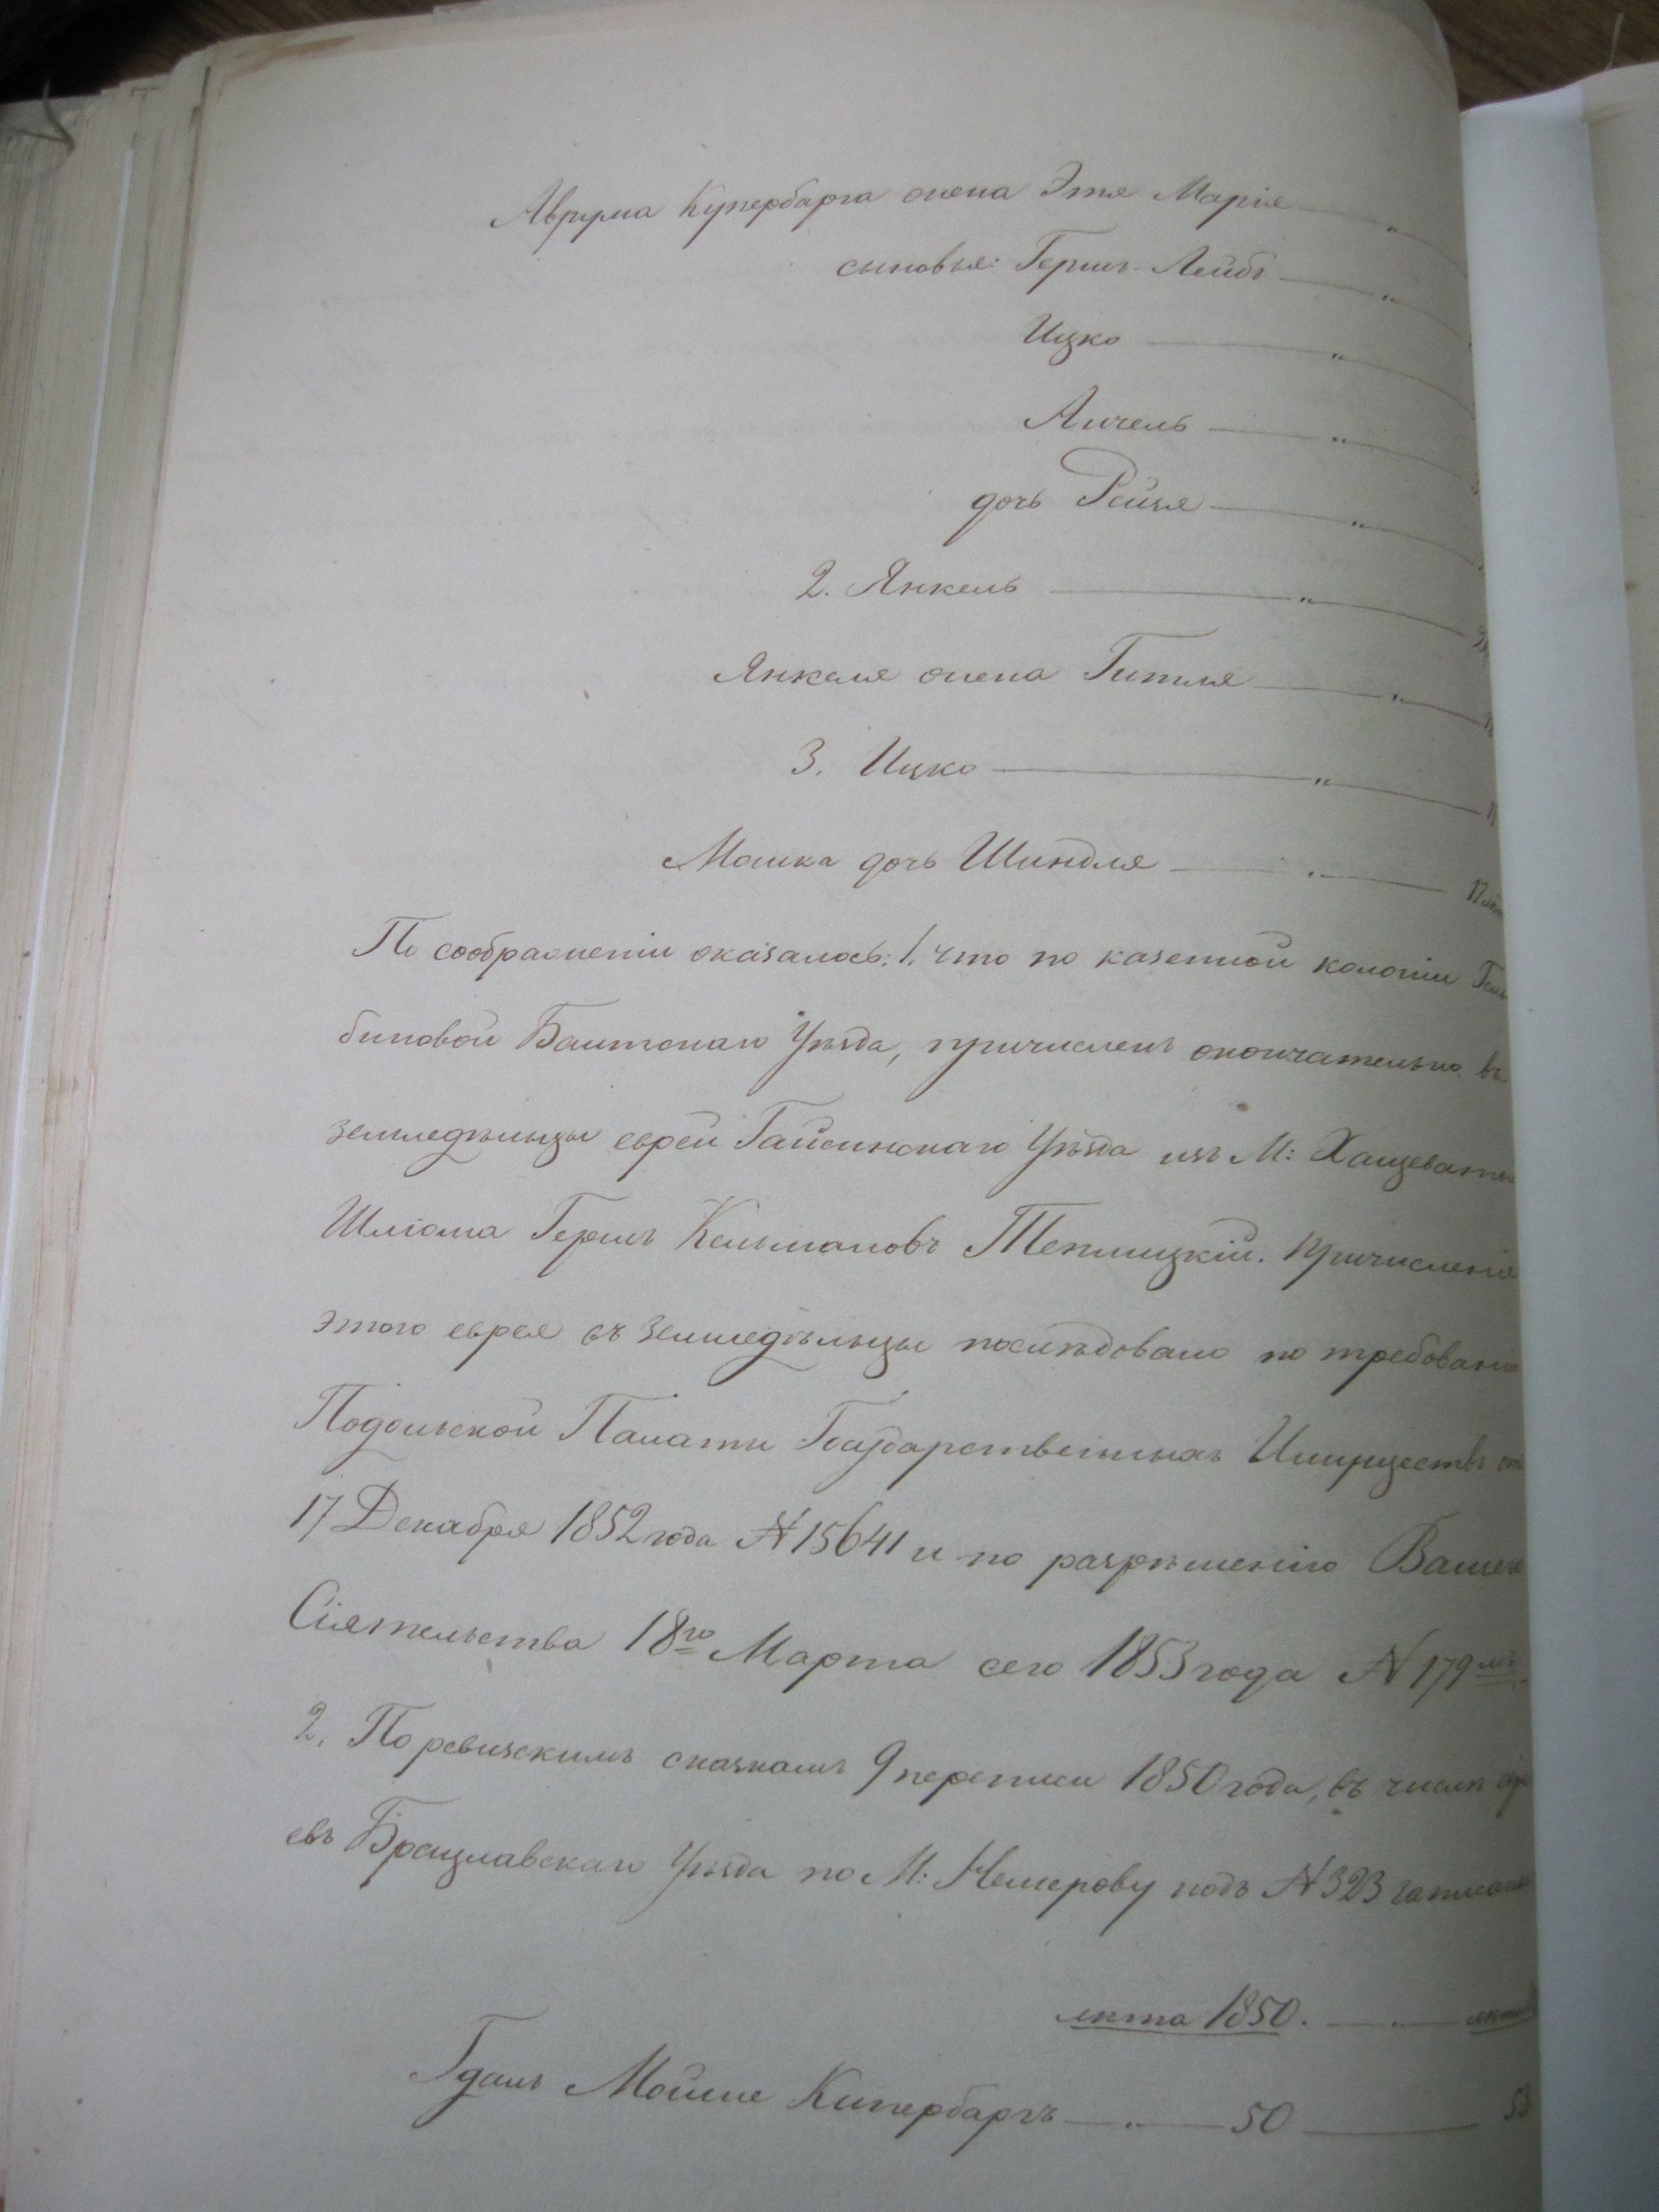 Аврума Купербарга жена Этя Марія — „
сыновья: Гершъ-Лейбъ — „
Ицко — „
Анчель — „
дочь Рейзя — „
2. Янкель — „
Янкеля жена Гитля — „
3. Ицко — „
Мошка дочь Шиндля — „ — 17
По соображеніи оказалось: 1, что по казенной колоніи
биновой Балтскаго Уѣзда, причисленъ окончательно въ
земледѣльцы еврей Гайсинскаго Уѣзда изъ М: Хащеваты
Шліома Гершъ Кельмановъ Теплицкій. Причисленіе
этого еврея въ земледѣльцы послѣдовало по требованію
Подольской Палаты Государственныхъ Имуществъ отъ
17 Декабря 1852 года № 15641 и по разрѣшенію Вашего
Сіятельства 18го Марта сего 1853 года № 179
2, По ревизскимъ сказкамъ 9 переписи 1850 года, въ числѣ
евъ Брацлавскаго Уѣзда по М: Немирову подъ № 323 записаны
лѣта 1850. — „ —
Гдаль Мошле Кипербаргъ — „ — 50 — 53